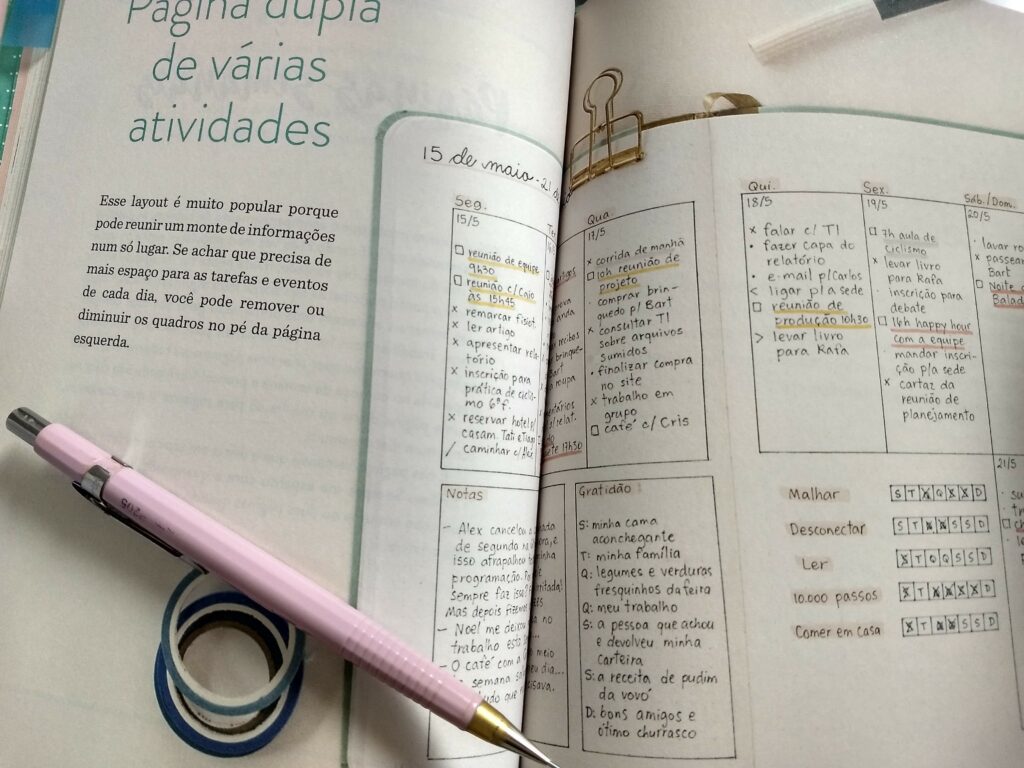 Página dupla
de várias
atividades
Esse layout é muito popular porque
pode reunir um monte de informações
num só lugar. Se achar que precisa de
mais espaço para as tarefas e eventos
de cada dia, você pode remover ou
diminuir os quadros no pé da página
esquerda.
15 de maio - 21 de
Seg.
15/5
reunião de equipe
9h30
reunião c/ Caio
às 15h45
x remarcar fisiot.
x ler artigo
x apresentar rela-
tório
x inscrição para
prática de ciclis-
mo 6ªf.
x reservar hotel p/
casam. Tati e Tiago
/ caminhar c/ Alex
17h30
Qua.
17/5
x corrida de manhã
10h reunião de
projeto
· comprar brin-
quedo p/ Bart
x consultar TI
sobre arquivos
sumidos
· finalizar compra
no site
x trabalho em
grupo
café c/ Cris
Qui.
18/5
x falar c/ TI
· fazer capa do
relatório
· e-mail p/ Carlos
< ligar p/ a sede
reunião de
produção 10h30
> levar livro
para Rafa
Sex.
19/5
7h aula de
ciclismo
x levar livro
para Rafa
· inscrição para
debate
16h happy hour
com a equipe
· mandar inscri-
ção p/ a sede
x cartaz da
reunião de
planejamento
Sáb./Dom.
20/5
· lavar
x passear
Bart
Noite
Balad
21/5
Notas
- Alex cancelou
de segundo
isso atrapalhou
programação.
sempre faz isso
Mas depois
- Noel me deixou
trabalho
- O café com a
semana
Gratidão
S: minha cama
aconchegante
T: minha família
Q: legumes e verduras
fresquinhos da feira
Q: meu trabalho
S: a pessoa que achou
e devolveu minha
carteira
S: a receita de pudim
da vovó
D: bons amigos e
ótimo churrasco
Malhar
Desconectar
Ler
10.000 passos
Comer em casa